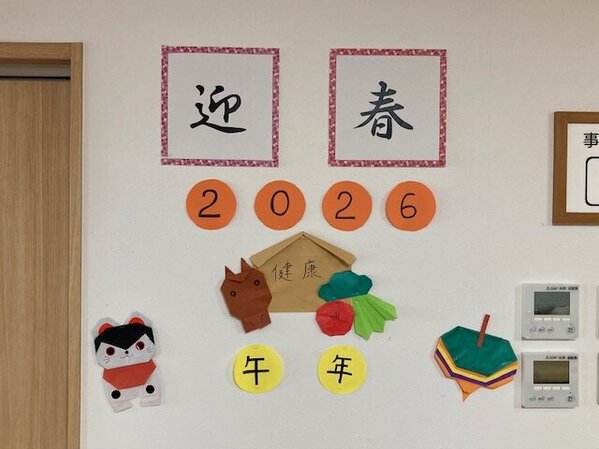 迎春
2026
健康
午年
事